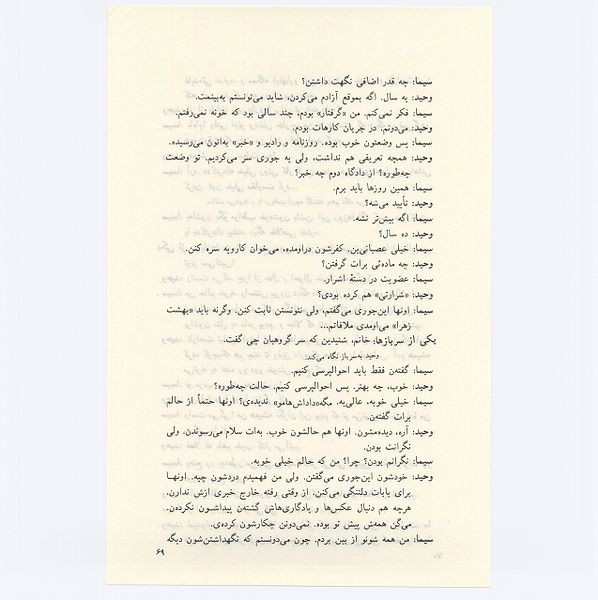 سیما: چه قدر اضافی نگهت داشتن؟
وحید: یه سال. اگه بموقع آزادم می‌کردن، شاید می‌تونستم به‌بینمت.
سیما: فکر نمی‌کنم. من «گرفتار» بودم، چند سالی بود که خونه نمی‌رفتم.
وحید: می‌دونم. در جریان کارهات بودم.
سیما: پس وضعتون خوب بوده. روزنامه و رادیو و «خبر» به‌اتون می‌رسیده.
وحید: همچه تعریفی هم نداشت، ولی یه جوری سر می‌کردیم. تو وضعت
چه‌طوره؟ از دادگاه دوم چه خبر؟
سیما: همین روزها باید برم.
وحید: تأیید می‌شه؟
سیما: اگه بیش‌تر نشه.
وحید: ده سال؟
سیما: خیلی عصبانی‌ین. کفرشون دراومده، می‌خوان کارو یه سره کنن.
وحید: چه ماده‌ئی برات گرفتن؟
سیما: عضویت در دستهٔ اشرار.
وحید: «شرارتی» هم کرده بودی؟
سیما: اونها این‌جوری می‌گفتن، ولی نتونستن ثابت کنن. وگرنه باید «بهشت
زهرا» می‌اومدی ملاقاتم...
یکی از سربازها: خانم، شنیدین که سر گروهبان چی گفت.
وحید به‌سرباز نگاه می‌کند.
سیما: گفته‌ن فقط باید احوالپرسی کنیم.
وحید: خوب، چه بهتر. پس احوالپرسی کنیم. حالت چه‌طوره؟
سیما: خیلی خوبه. عالی‌یه. مگه «داداش‌هامو» ندیده‌ی؟ اونها حتماً از حالم
برات گفته‌ن.
وحید: آره، دیده‌مشون. اونها هم حالشون خوب. به‌ات سلام می‌رسوندن. ولی
نگرانت بودن.
سیما: نگرانم بودن؟ چرا؟ من که حالم خیلی خوبه.
وحید: خودشون این‌جوری می‌گفتن. ولی من فهمیدم دردشون چیه. اونهـا
برای بابات دلتنگی می‌کنن. از وقتی رفته خارج خبری ازش ندارن.
هرچه هم دنبال عکس‌ها و یادگاری‌هاش گشته‌ن پیداشـون نکرده‌ن.
می‌گن همه‌ش پیش تو بوده. نمی‌دونن چکارشون کرده‌ی.
سیما: من همه شونو از بین بردم. چون می‌دونستم که نگهداشتن‌شون دیگه
۶۹